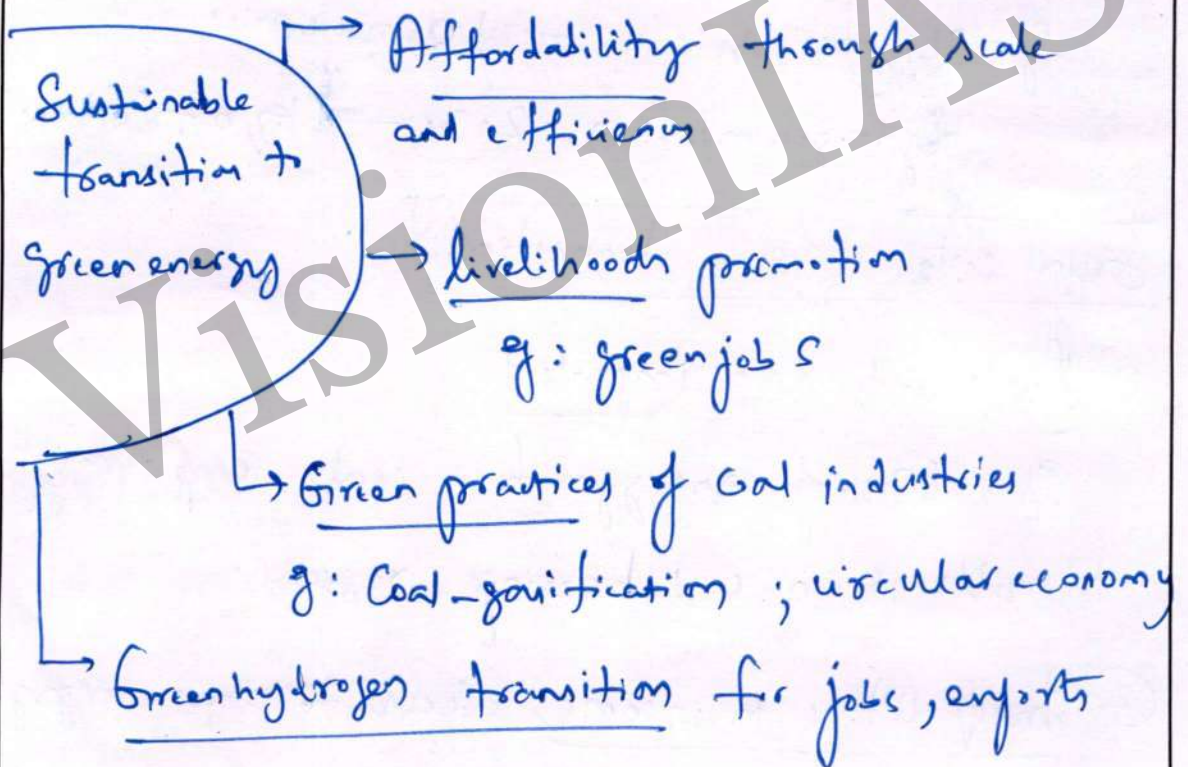 Sustainable
transition to
green energy
Affordability through scale
and efficiency
livelihoods promotion
eg: green jobs
Green practices of Coal industries
eg: Coal-gasification ; circular economy
Green hydrogen transition for jobs, exports
VisionIAS